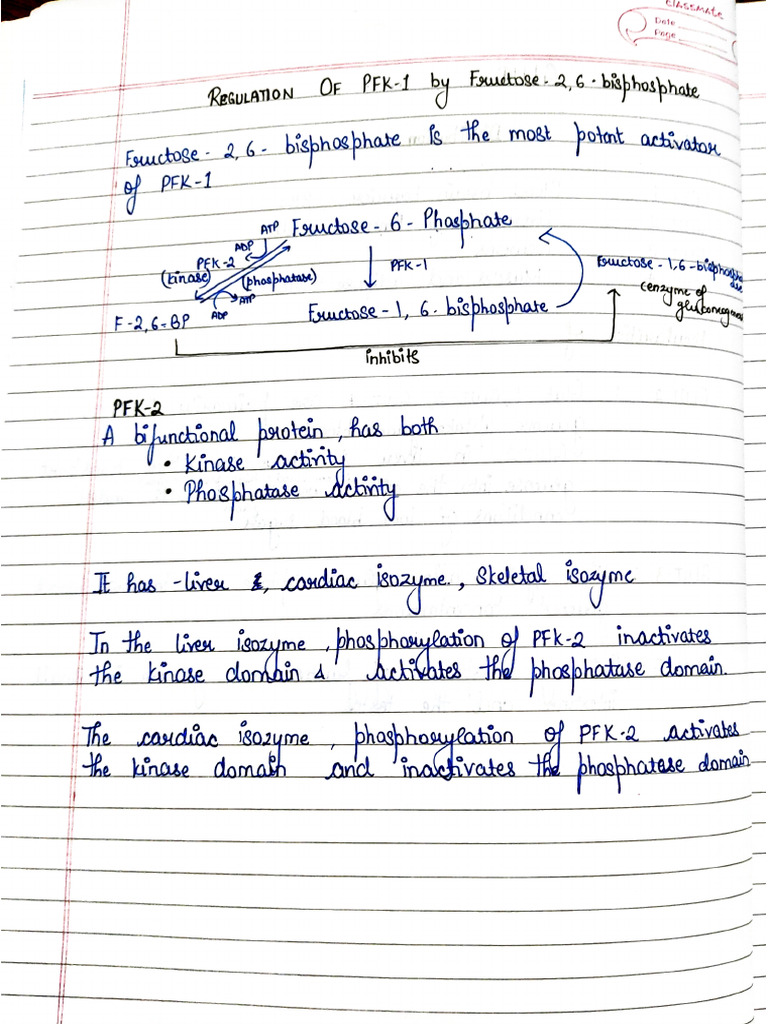 classmate
Date
Page
REGULATION OF PFK-1 by Fructose-2,6-bisphosphate
Fructose-2,6-bisphosphate is the most potent activator
of PFK-1
ATP Fructose-6-Phosphate
ADP
PFK-2 PFK-1 Fructose-1,6-bisphosphatase
(kinase) (phosphatase) (enzyme of
ATP gluconeogenesis
F-2,6-BP ADP Fructose-1,6-bisphosphate
inhibits
PFK-2
A bifunctional protein, has both
• Kinase activity
• Phosphatase activity
It has -liver &, cardiac isozyme., Skeletal isozyme
In the liver isozyme, phosphorylation of PFK-2 inactivates
the kinase domain & activates the phosphatase domain.
The cardiac isozyme, phosphorylation of PFK-2 activates
the kinase domain and inactivates the phosphatase domain